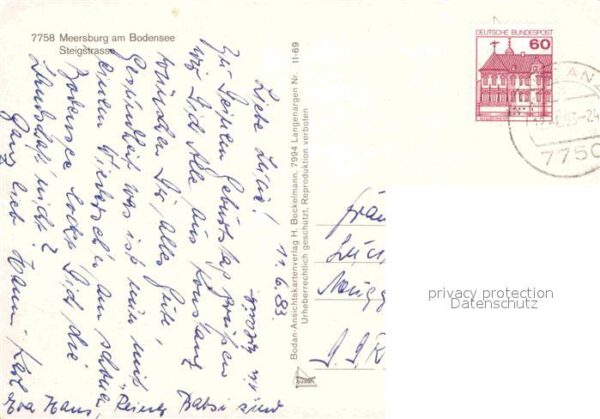 7758 Meersburg am Bodensee
Steigstrasse
11.6.83
Liebe Luzie!
Zu Deinem Geburtstag grüßen
wir Dich Alle aus Konstanz
wünschen Dir alles Gute,
Gesundheit was ist nun mit
einem Wiederseh'n am schönen
Bodensee lockt Dich die
Landschaft nicht?
Ganz lieb Hanni, Karl
Eva Hans, Reiner Babsi sind
in
Bodan-Ansichtskartenverlag H. Bockelmann, 7994 Langenargen Nr. 11-69
Urheberrechtlich geschützt. Reproduktion verboten
DEUTSCHE BUNDESPOST
60
7750
Frau
privacy protection
Datenschutz